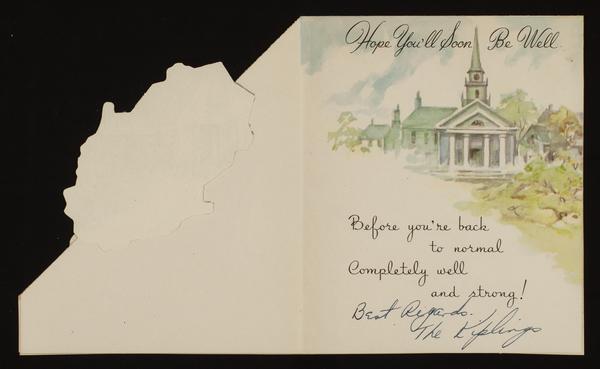 Hope You'll Soon Be Well
Before you're back
to normal
Completely well
and strong!
Best Regards.
The Kiplings